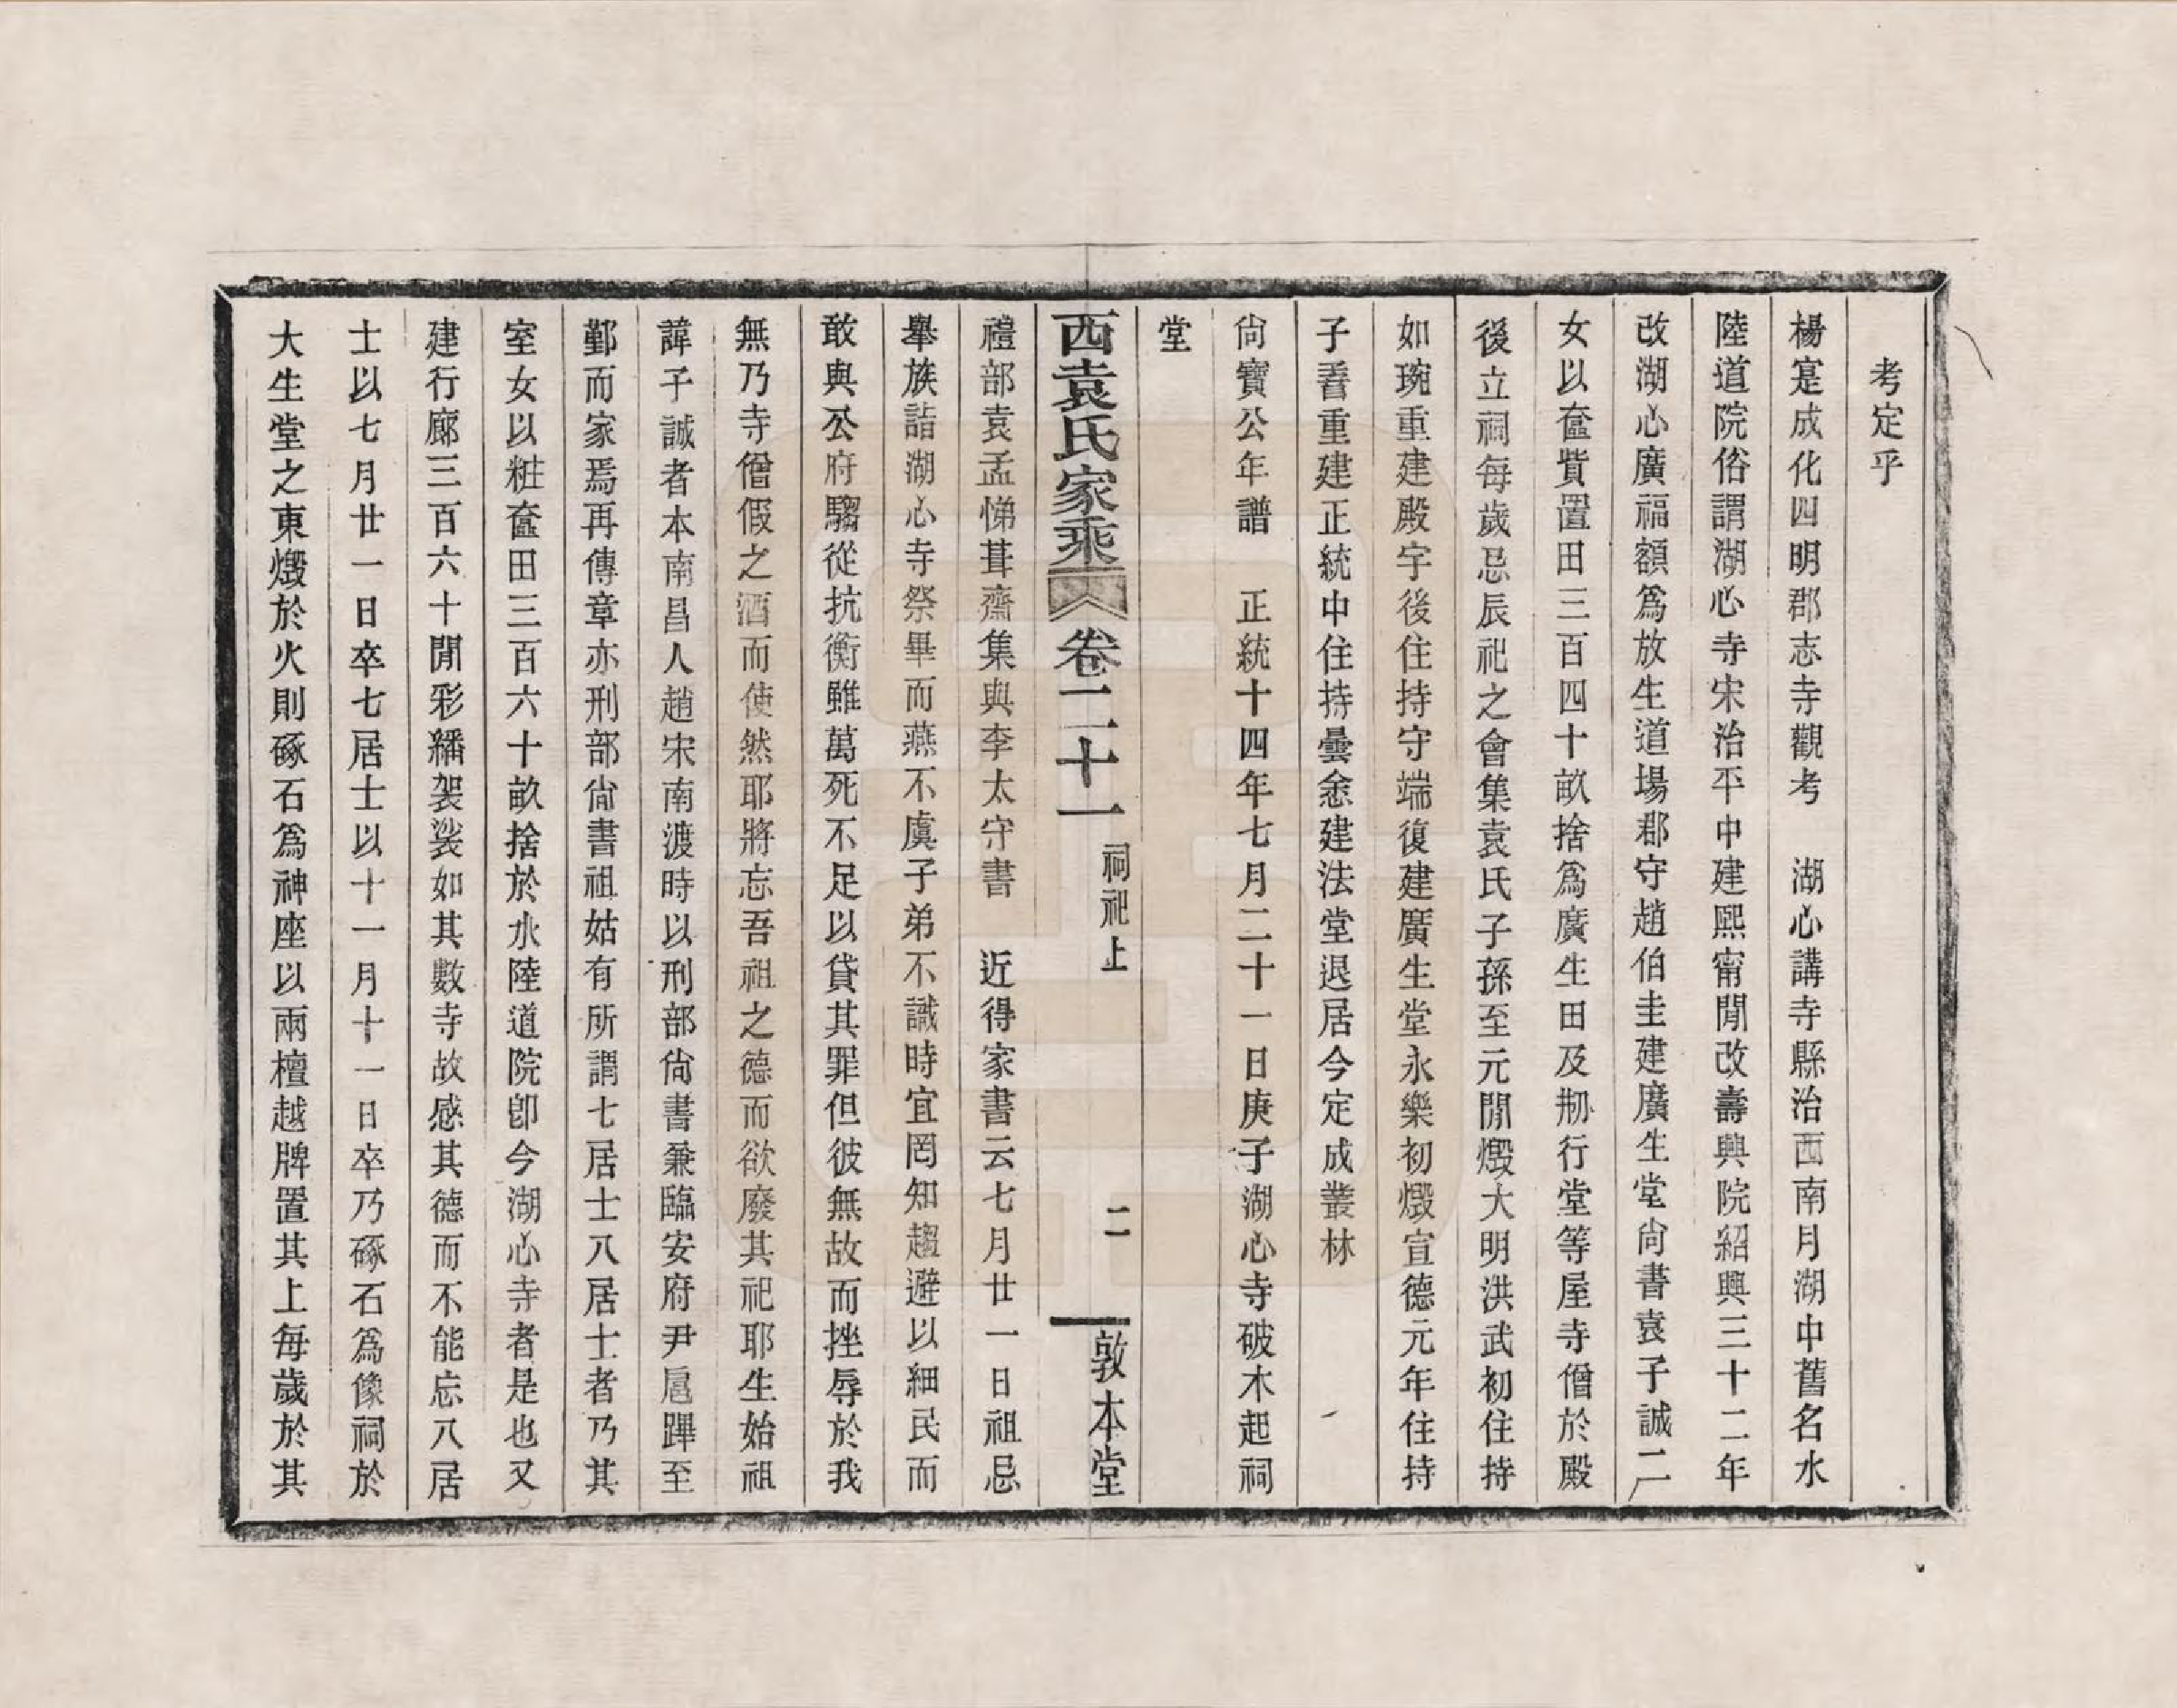 考定乎
楊寔成化四明郡志寺觀考　湖心講寺縣治西南月湖中舊名水
陸道院俗謂湖心寺宋治平中建熙甯閒改壽興院紹興三十二年
改湖心廣福額爲放生道場郡守趙伯圭建廣生堂尙書袁子誠二
女以奩貲置田三百四十畝捨爲廣生田及剏行堂等屋寺僧於殿
後立祠每歲忌辰祀之會集袁氏子孫至元閒燬大明洪武初住持
如琬重建殿宇後住持守端復建廣生堂永樂初燬宣德元年住持
子㫪重建正統中住持曇悆建法堂退居今定成叢林
尙寶公年譜　正統十四年七月二十一日庚子湖心寺破木起祠
堂
西袁氏家乘　卷二十一　祠祀上　二　敦本堂
禮部袁孟悌葺齋集與李太守書　近得家書云七月廿一日祖忌
舉族詣湖心寺祭畢而燕不虞子弟不識時宜罔知趨避以細民而
敢與公府騶從抗衡雖萬死不足以貸其罪但彼無故而挫辱於我
無乃寺僧假之酒而使然耶將忘吾祖之德而欲廢其祀耶生始祖
諱子誠者本南昌人趙宋南渡時以刑部尙書兼臨安府尹扈蹕至
鄞而家焉再傳章亦刑部尙書祖姑有所謂七居士八居士者乃其
室女以粧奩田三百六十畝捨於水陸道院卽今湖心寺者是也又
建行廊三百六十閒彩繙袈裟如其數寺故感其德而不能忘八居
士以七月廿一日卒七居士以十一月十一日卒乃硺石爲像祠於
大生堂之東燬於火則硺石爲神座以兩檀越牌置其上每歲於其